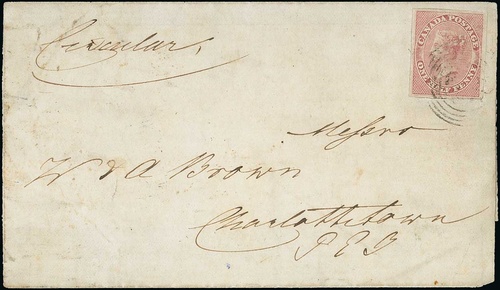 Circular,
CANADA POSTAGE
ONE HALF PENNY
Messrs
W & A Brown
Charlottetown
P E I